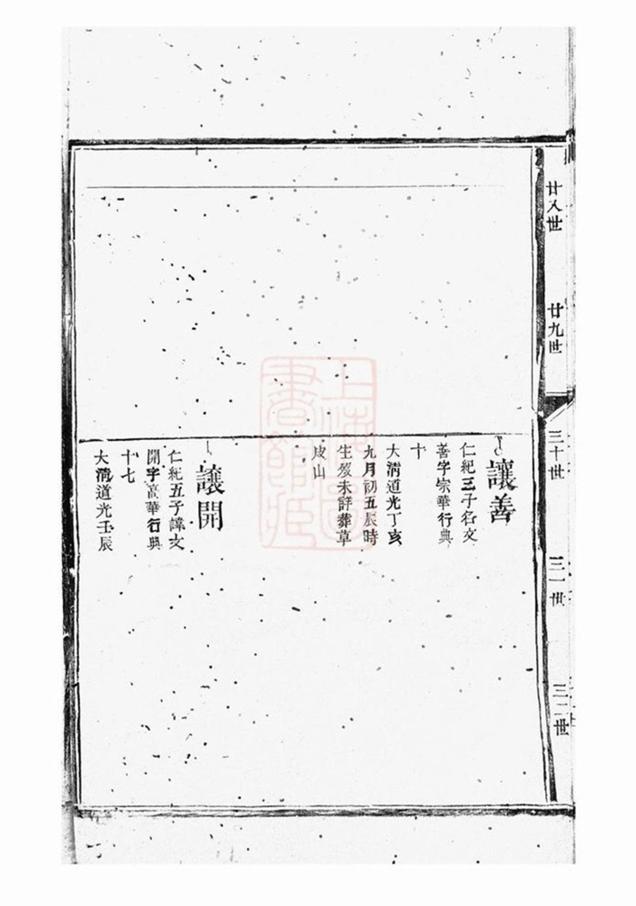 廿八世
廿九世
三十世
三一世
三二世
讓善
仁紀三子名文
善字宗華行典
十
大清道光丁亥
九月初五辰時
生歿未詳葬草
皮山
讓開
仁紀五子諱文
開字高華行典
十七
大清道光壬辰
上海圖
書館藏